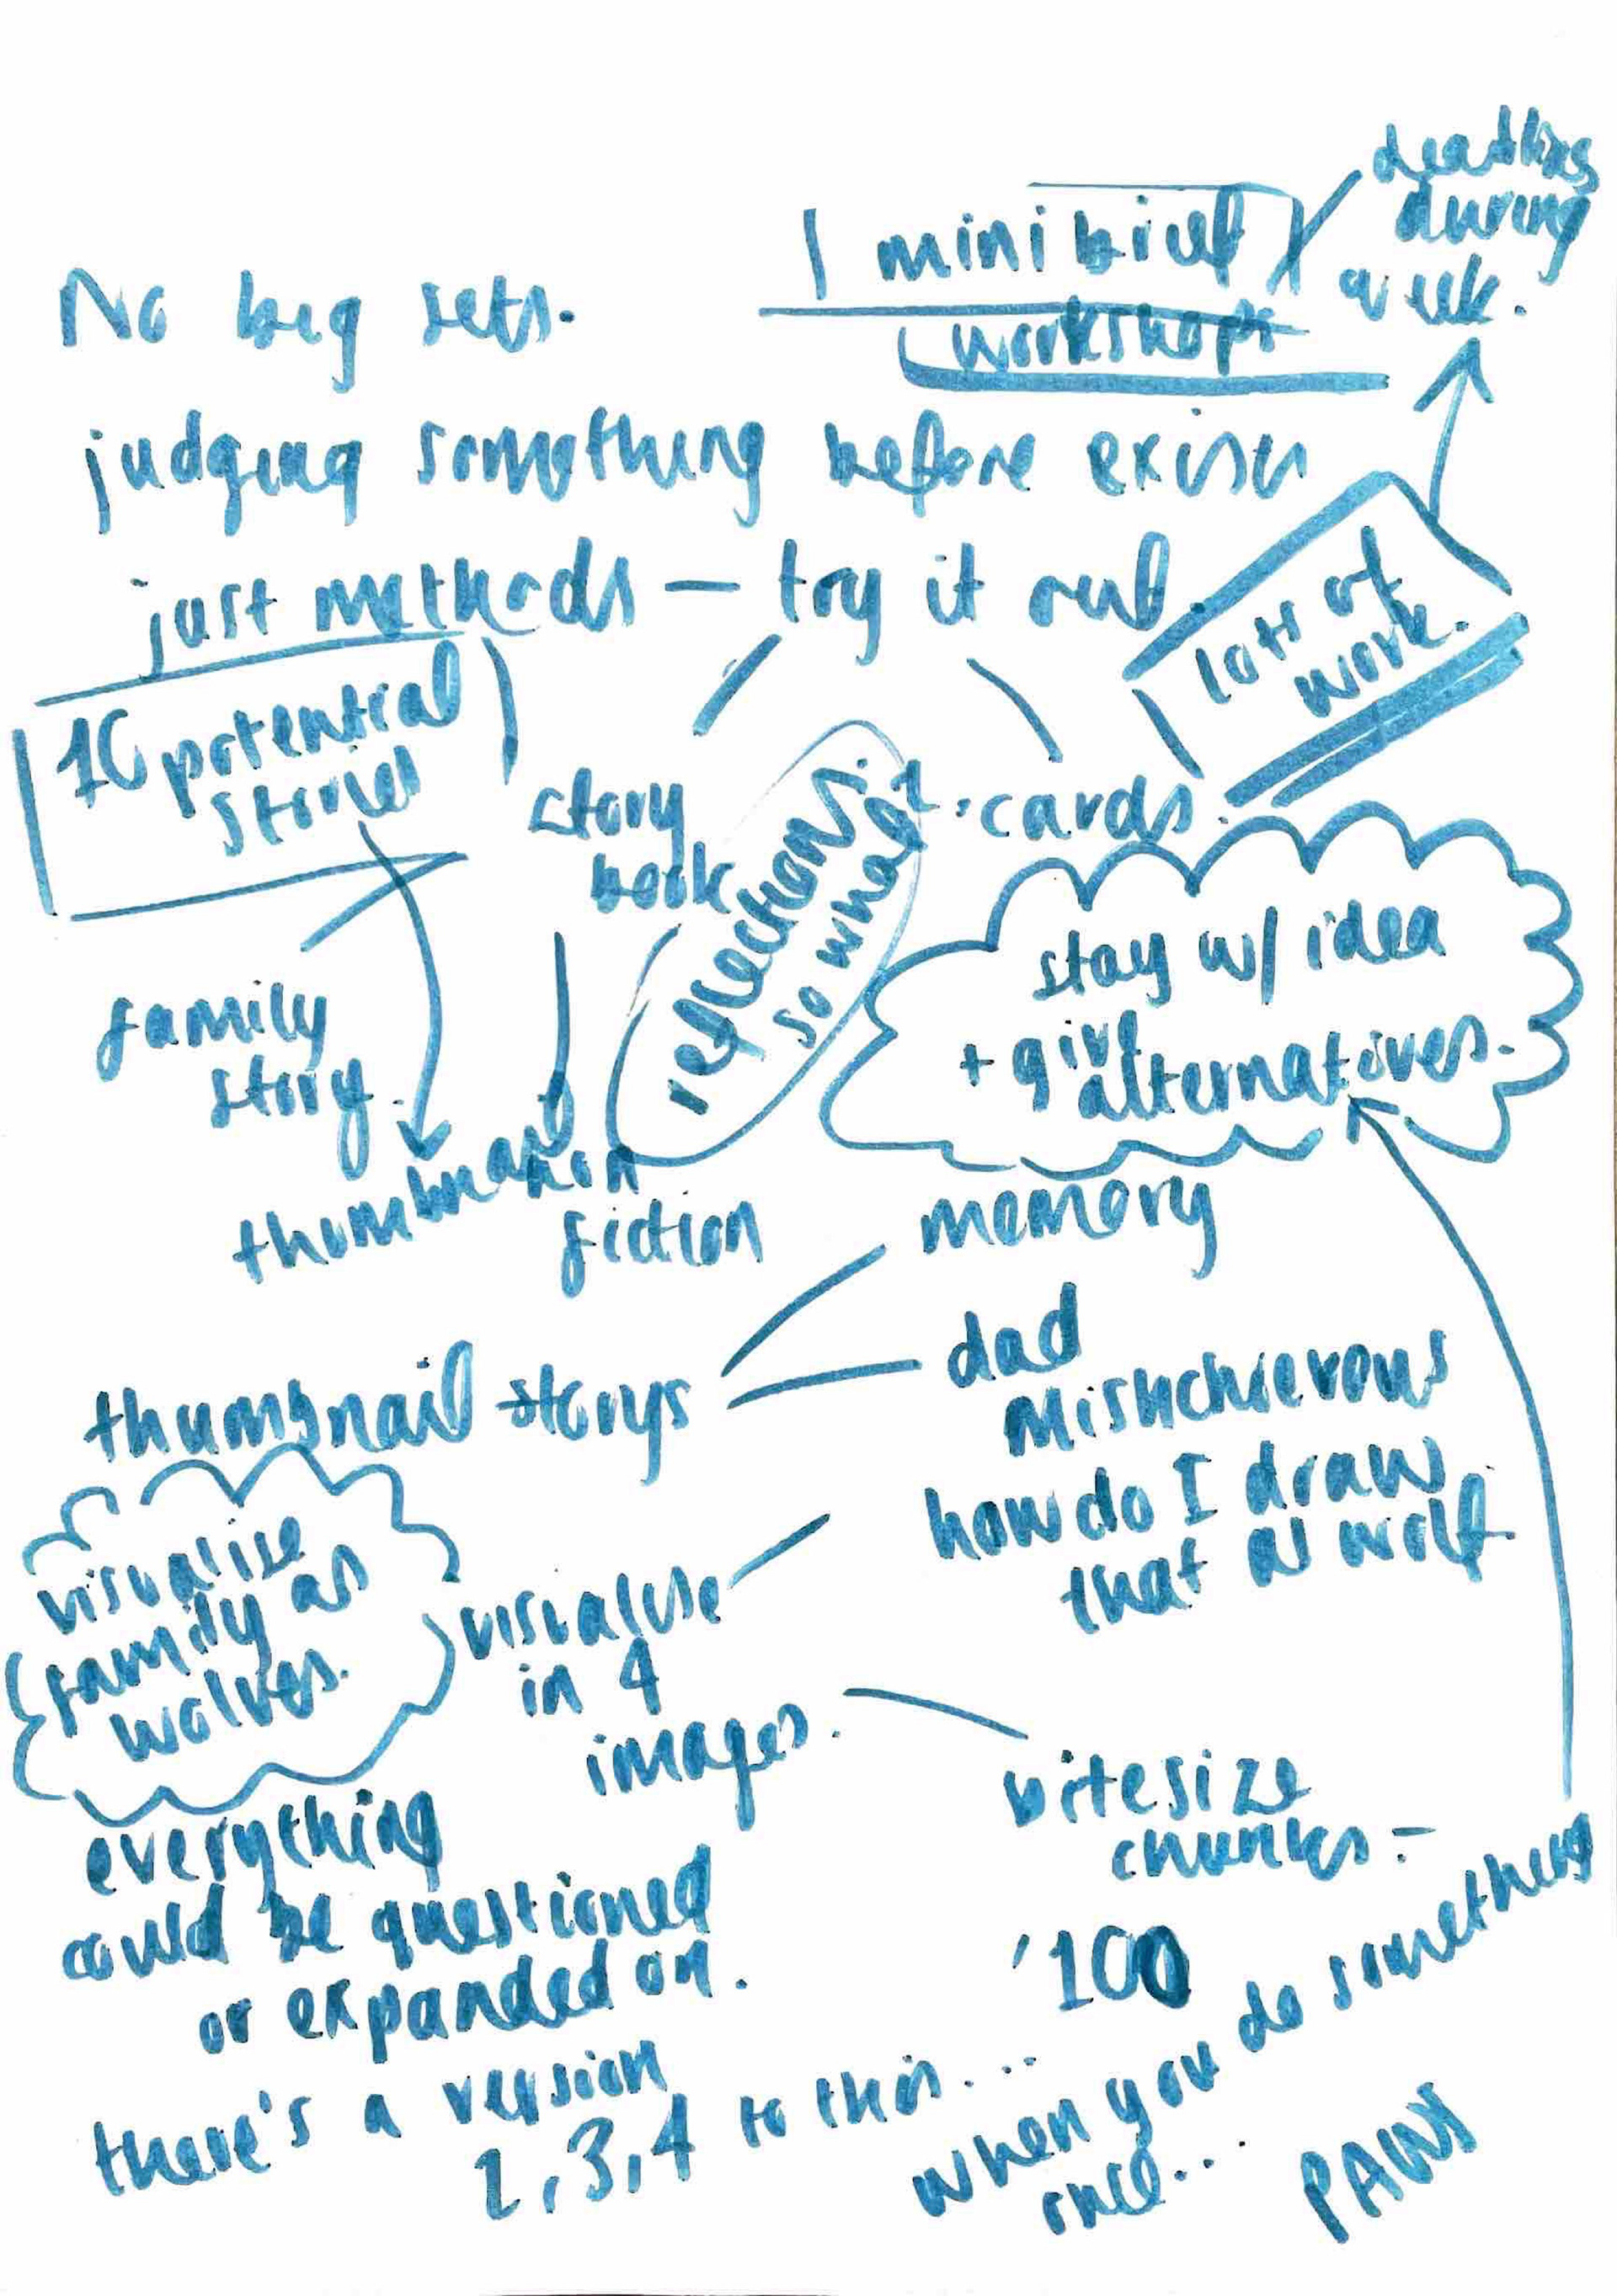 deadlines
during
week.
1 mini brief
workshops
No big sets.
judging something before exists
just methods — try it out
lots of
work.
10 potential
stories
story
book
reflections.
so what?
cards.
stay w/ idea
+ give
alternatives.
family
story.
thumbnail
non
fiction
memory
dad
mishchievous
how do I draw
that as wolf
thumbnail storys
visualise
family as
wolves.
visualise
in 4
images.
bitesize
chunks -
'100
everything
could be questioned
or expanded on.
there's a version
2,3,4 to this...
when you do something
once...
PAWS